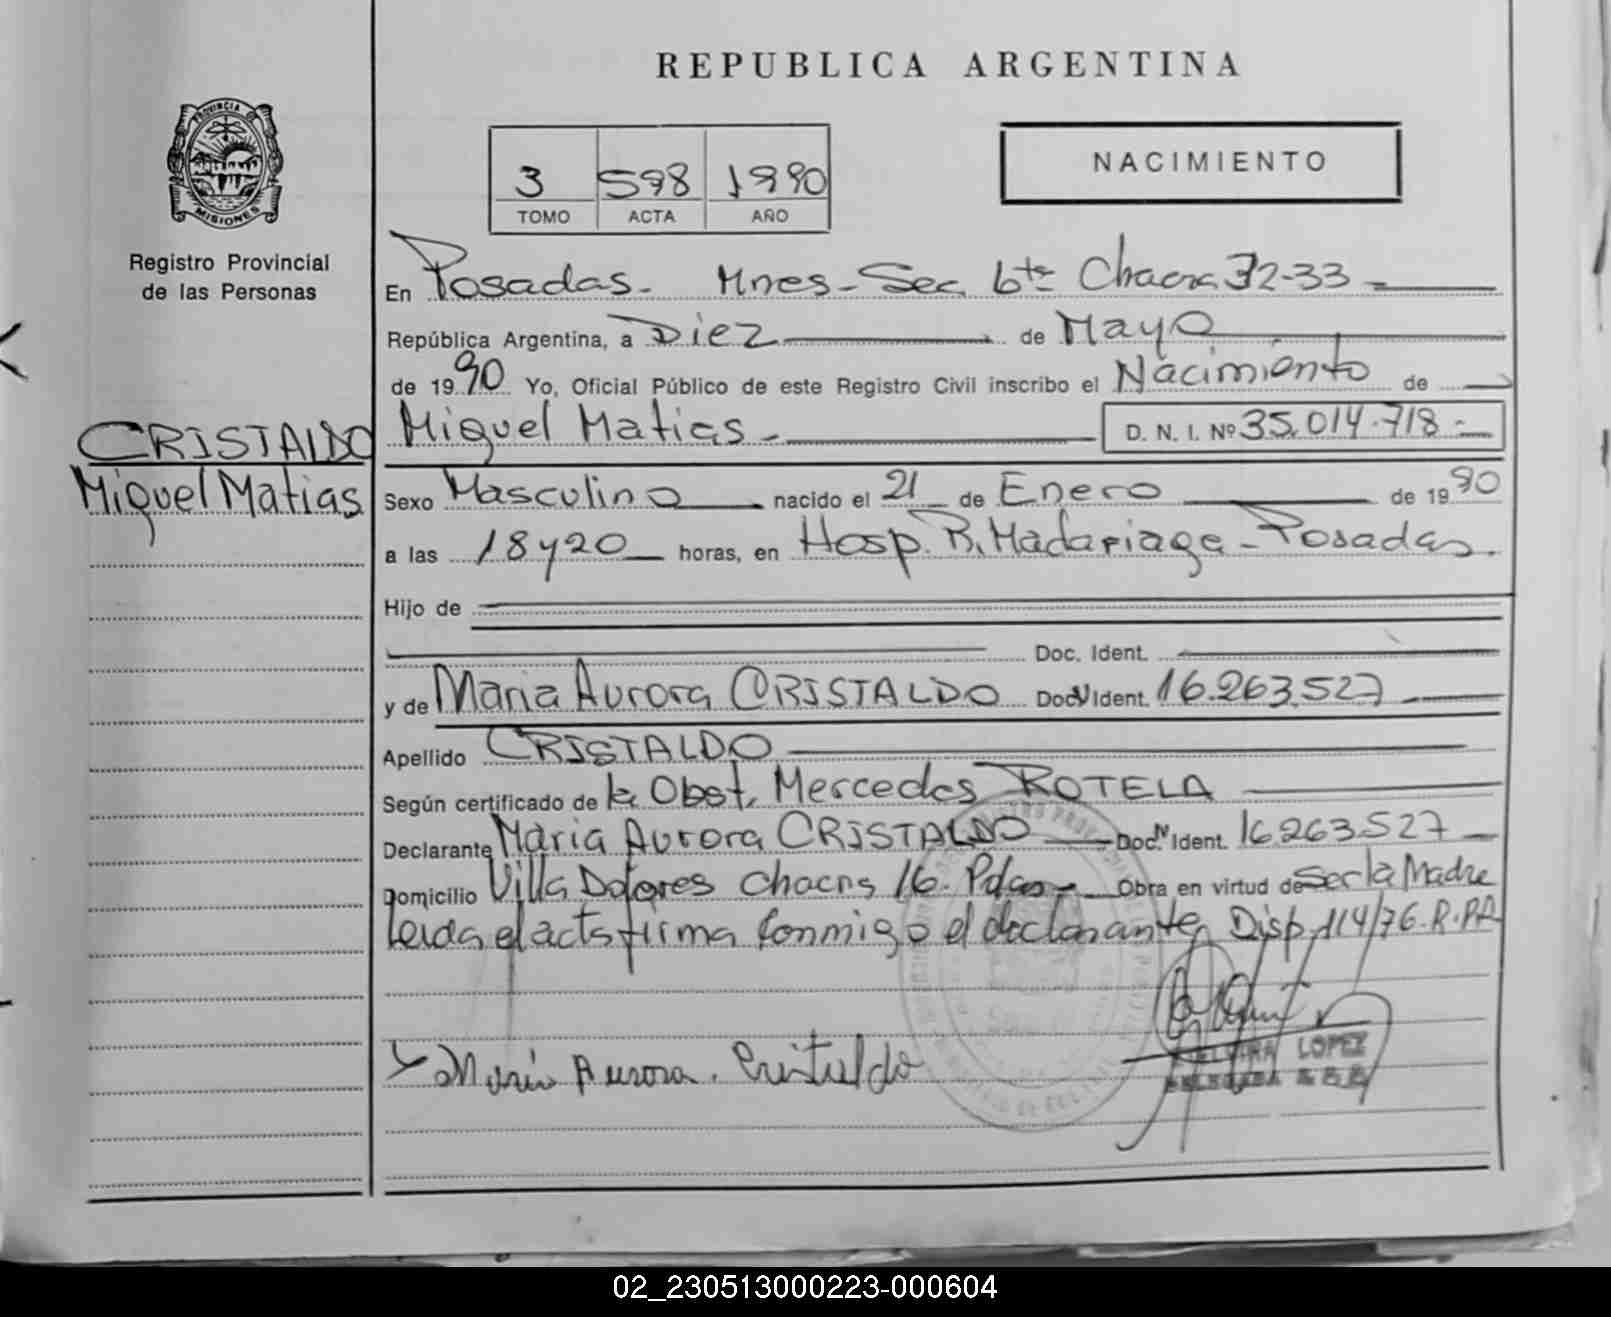 REPUBLICA ARGENTINA
PROVINCIA
MISIONES
Registro Provincial
de las Personas
3 598 1990
TOMO ACTA AÑO
NACIMIENTO
En Posadas. Mnes-Sec. 6ta Chacra 32-33
República Argentina, a Diez de Mayo
de 1990 Yo, Oficial Público de este Registro Civil inscribo el Nacimiento de
CRISTALDO
Miguel Matias
Miguel Matias. D. N. I. Nº 35.014.718.-
Sexo Masculino nacido el 21 de Enero de 1990
a las 18 y 20 horas, en Hosp. R. Madariaga - Posadas.
Hijo de
Doc. Ident.
y de Maria Aurora CRISTALDO Doc. N Ident. 16.263.527
Apellido CRISTALDO
Según certificado de la Obst. Mercedes ROTELA
Declarante Maria Aurora CRISTALDO Doc. N Ident. 16.263.527
Domicilio Villa Dolores Chacra 16. Pdas- Obra en virtud de Ser la Madre
Leida el acta firma conmigo el declarante, Disp. 114/76. R.P.P.
Maria Aurora. Cristaldo
ELVIRA LOPEZ
DELEGADA
02_230513000223-000604